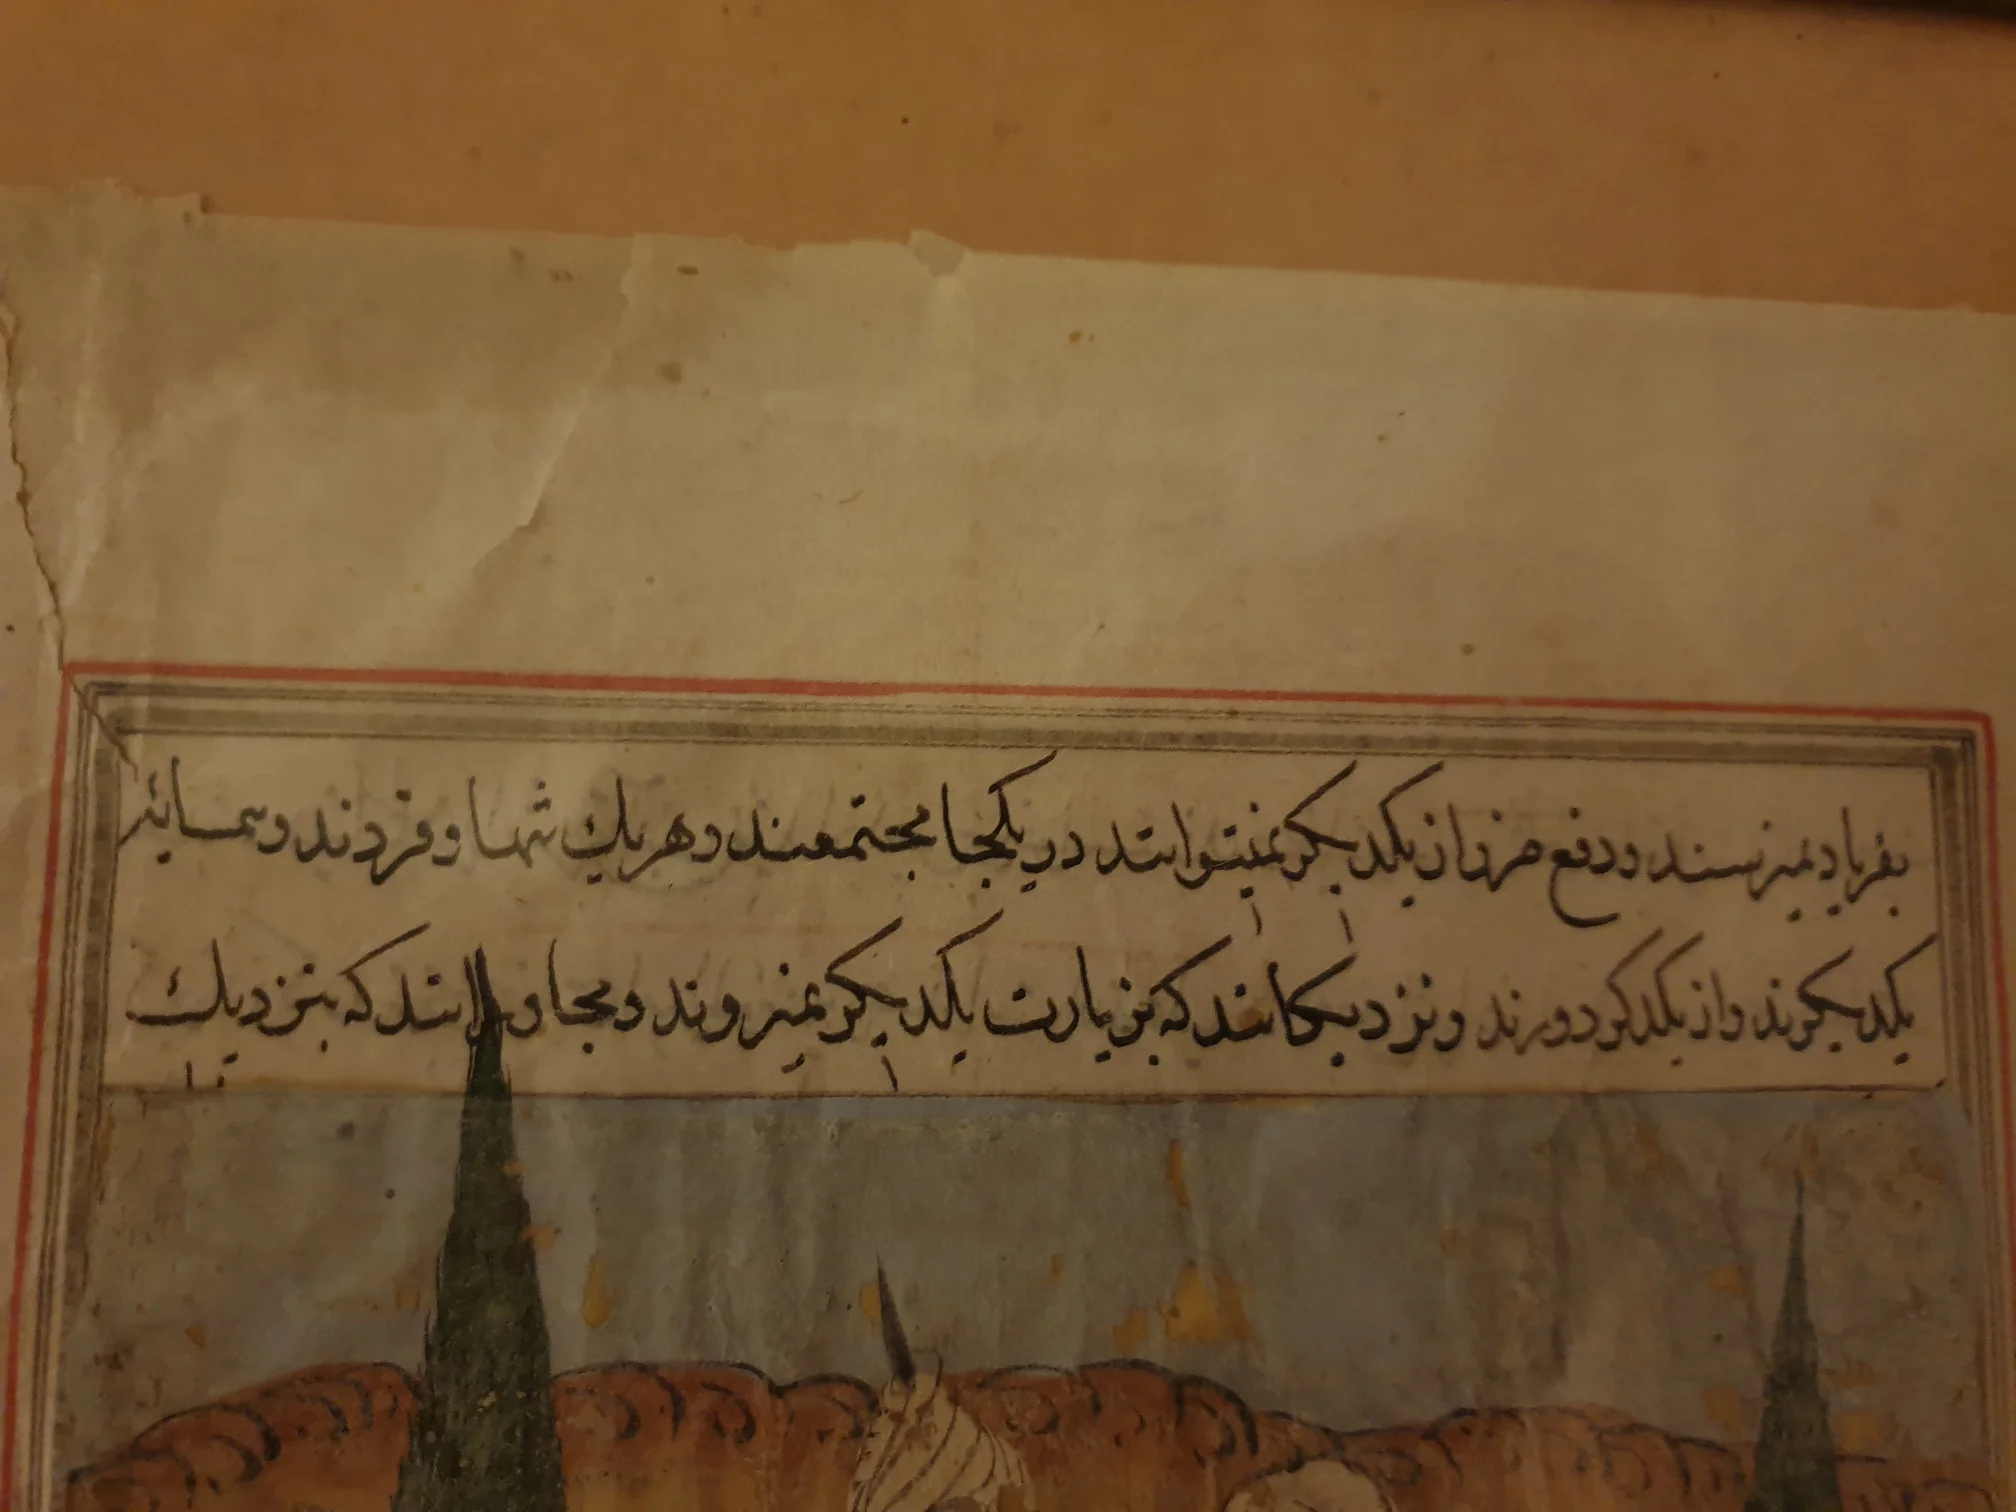 بفریاد نمیرسند و دفع ضرر از یکدیگر نمیتوانند در یکجا مجتمعند و هر یك تنها و فردند و همسایه
یکدیگرند و از یکدکر دورند و نزدیکانند که بزیارت یکدیگر نمیروند و مجاورانند که بنزدیك